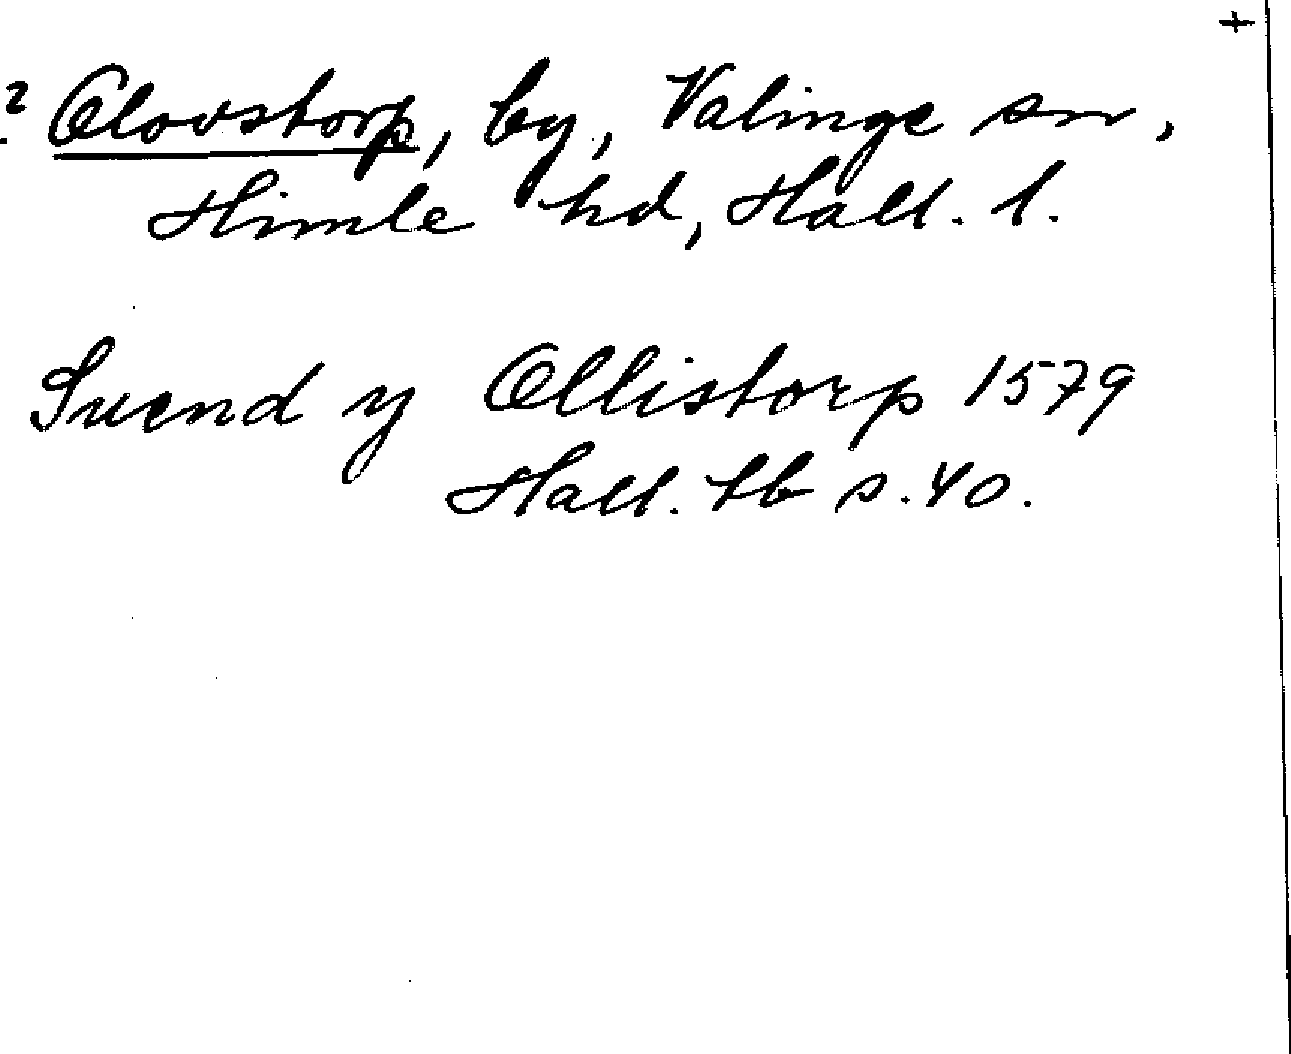 +
? Olovstorp, by, Valinge sn,
Himle hd, Hall. l.
Suend y Ollistorp 1579
Hall. tb s. 40.